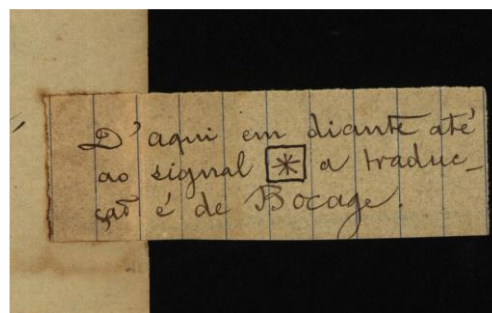 D'aqui em diante até
ao signal ⚹ a traduc-
ção é de Bocage.